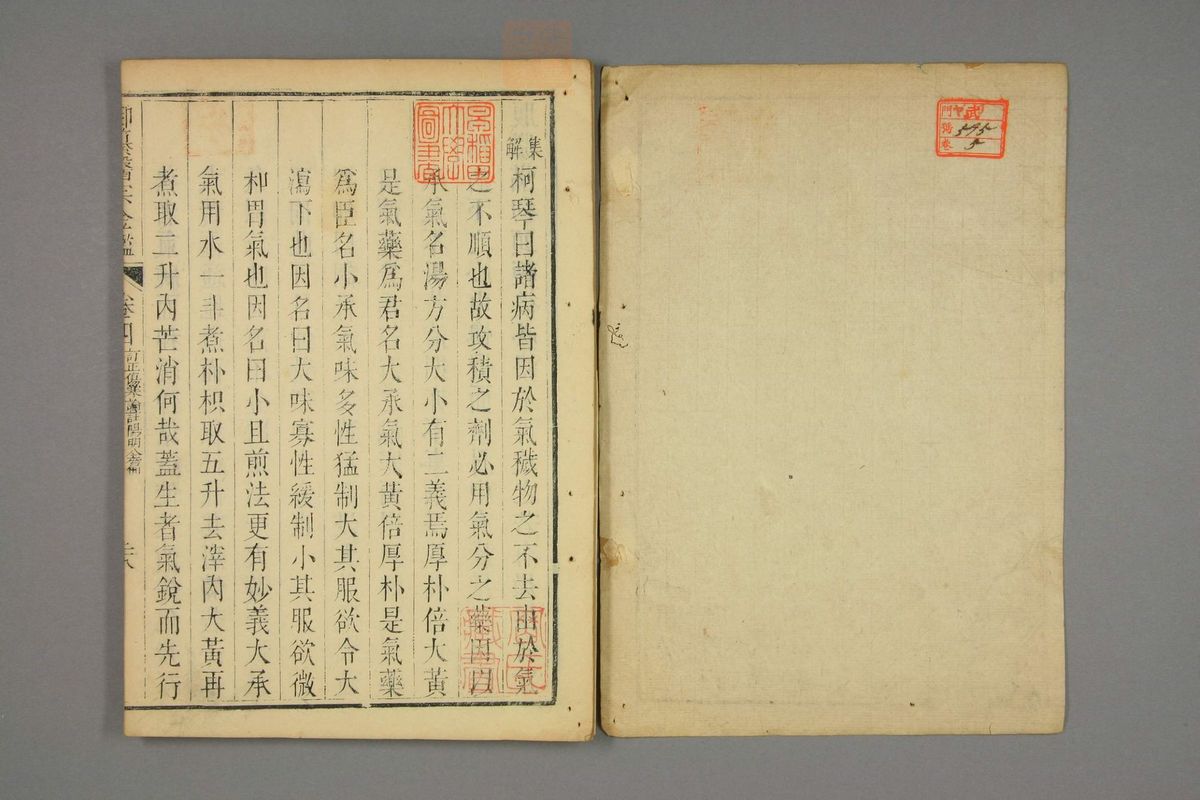 門 ヤ 武
號 595
卷 5
集解 柯琴曰諸病皆因於氣穢物之不去由於氣
之不順也故攻積之劑必用氣分之藥因以
承氣名湯方分大小有二義焉厚朴倍大黃
是氣藥爲君名大承氣大黃倍厚朴是氣藥
爲臣名小承氣味多性猛制大其服欲令大
瀉下也因名曰大味寡性緩制小其服欲微
和胃氣也因名曰小且煎法更有妙義大承
氣用水一斗煮朴枳取五升去滓內大黃再
煮取二升內芒消何哉蓋生者氣銳而先行
御纂醫宗金鑑 卷四 訂正傷寒論註陽明全篇